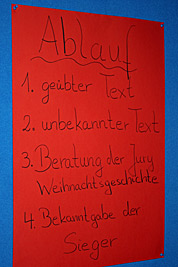 Ablauf
1. geübter Text
2. unbekannter Text
3. Beratung der Jury
Weihnachtsgeschichte
4. Bekanntgabe der
Sieger